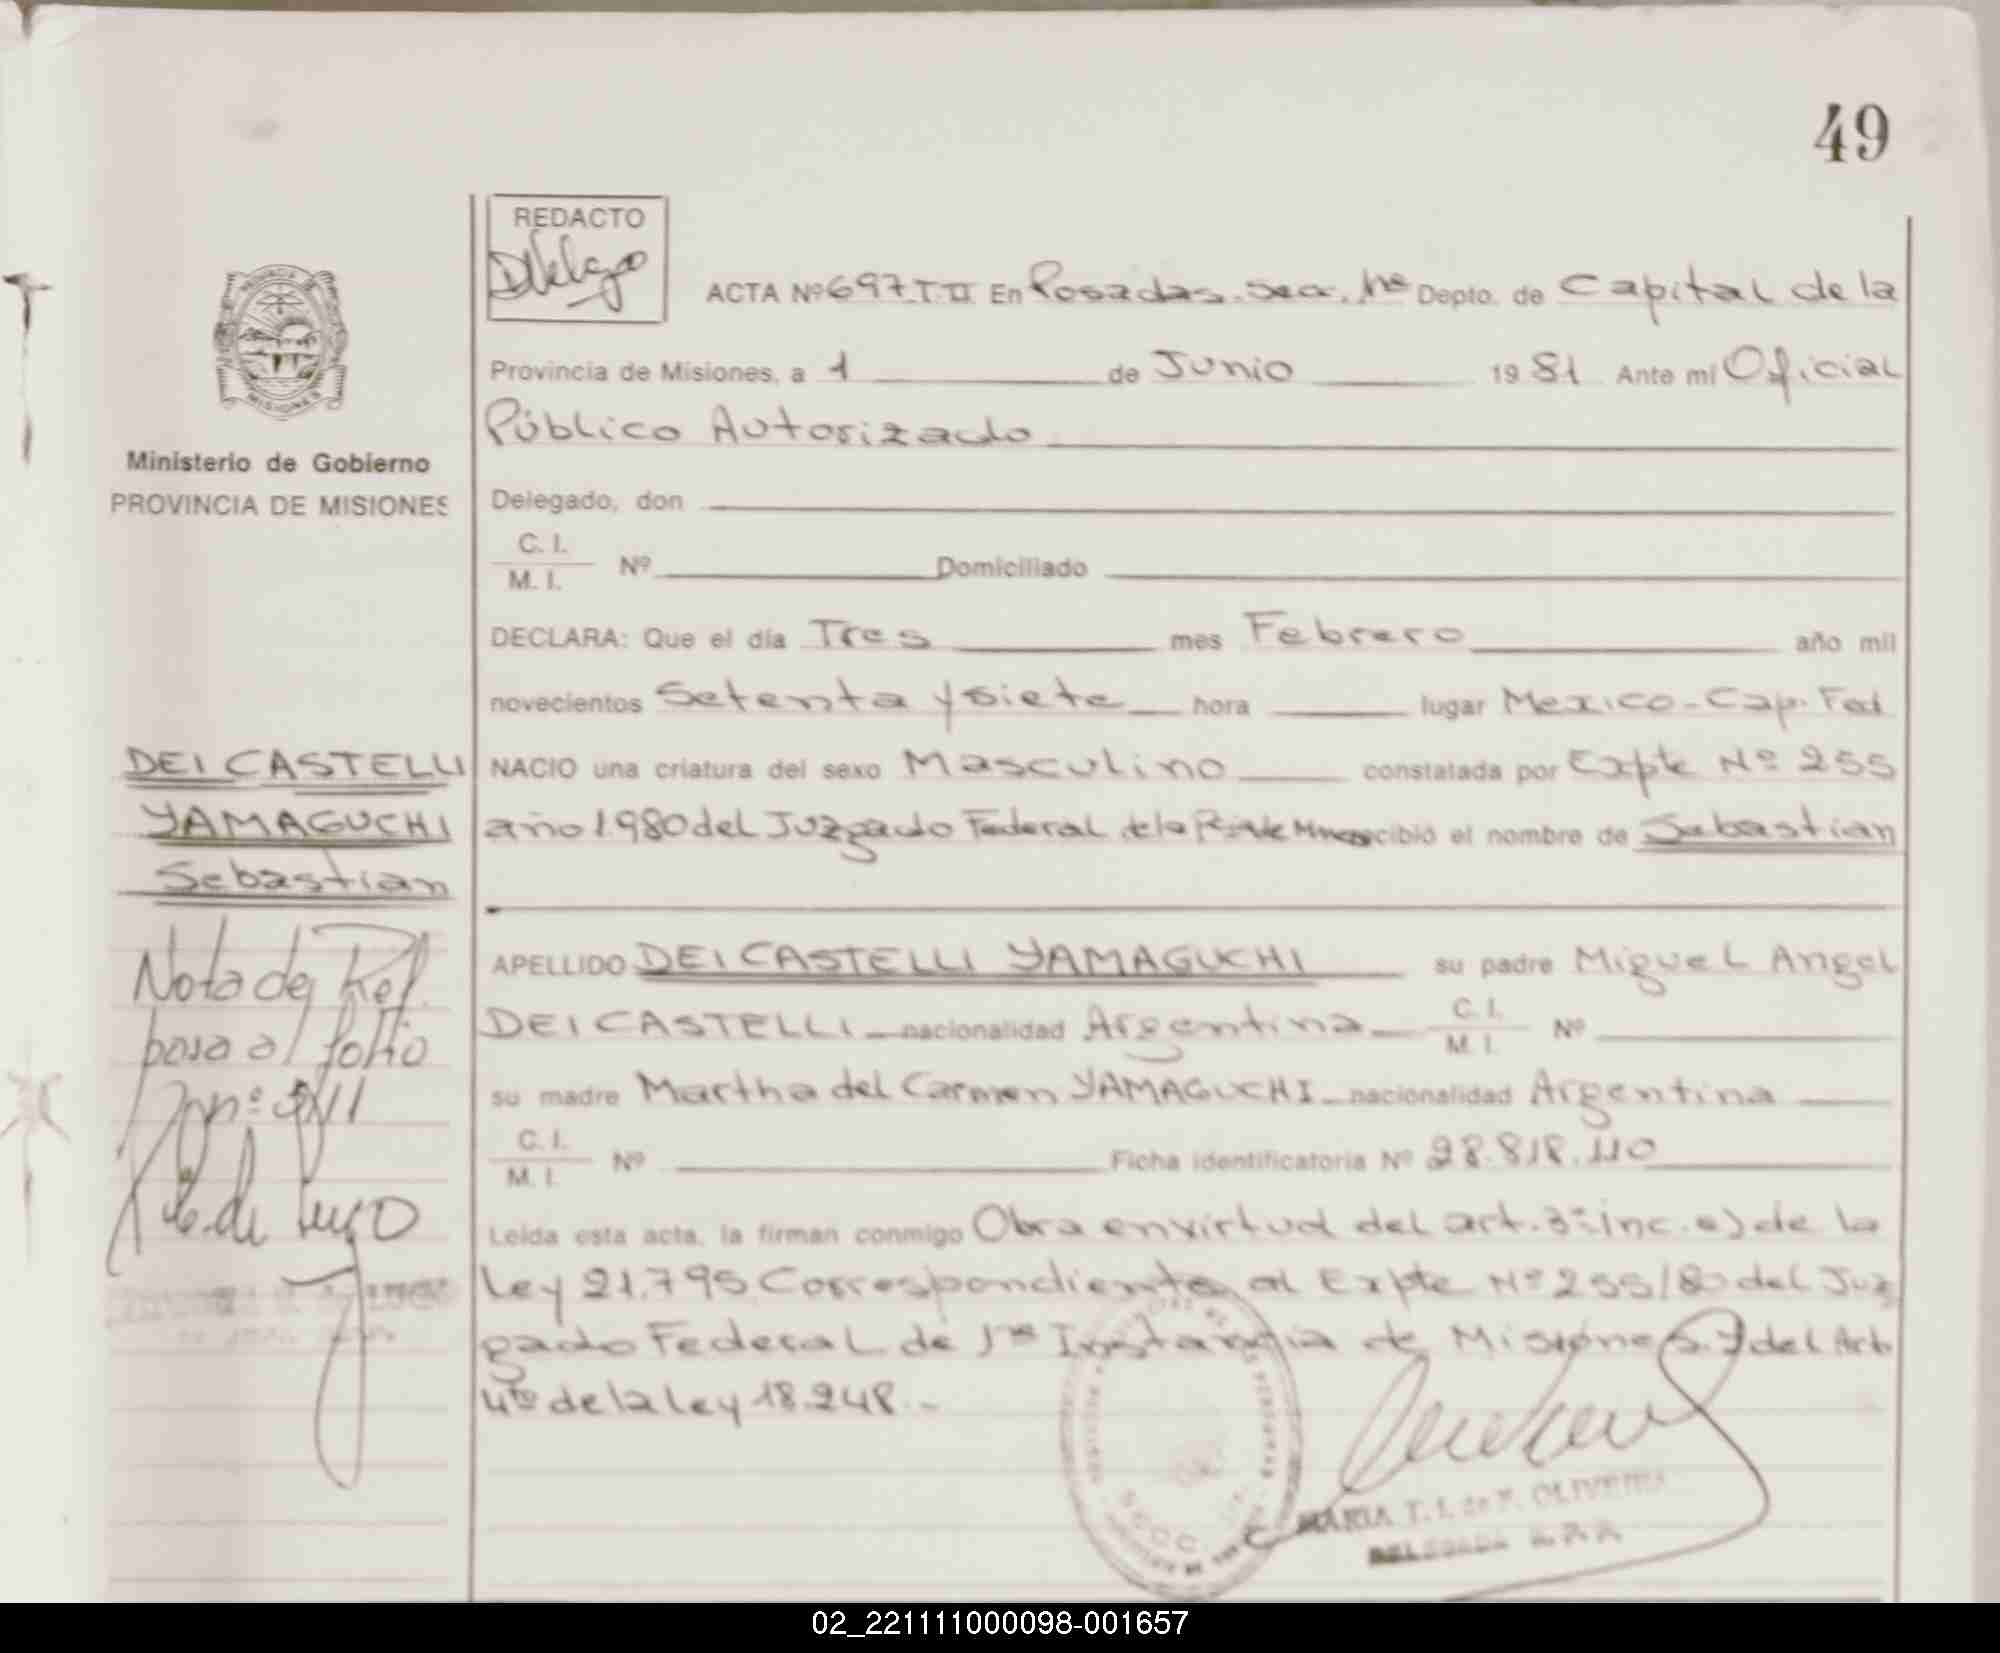 49
REDACTO
Delelgso
ACTA Nº 697. T II En Posadas. sec. 1ra Depto. de Capital de la
Provincia de Misiones, a 1 de Junio 1981 Ante mi Oficial
Público Autorizado
Ministerio de Gobierno
PROVINCIA DE MISIONES
Delegado, don
C. I.
M. I. Nº Domiciliado
DECLARA: Que el día Tres mes Febrero año mil
novecientos Setenta y siete hora lugar Mexico - Cap. Fed
DEI CASTELLI
YAMAGUCHI
Sebastian
NACIO una criatura del sexo Masculino constatada por Expte Nº 255
año 1.980 del Juzgado Federal de la cibió el nombre de Sebastian
APELLIDO DEI CASTELLI YAMAGUCHI su padre Miguel Angel
DEI CASTELLI nacionalidad Argentina C. I. M. I. Nº
su madre Martha del Carmen YAMAGUCHI nacionalidad Argentina
C. I.
M. I. Nº Ficha identificatoria Nº 28.818.110
Leída esta acta, la firman conmigo Obra en virtud del art. 3º: inc. e) de la
Ley 21.795 Correspondiente al Expte Nº 255/80 del Juz
gado Federal de 1ra Instancia de Misiones. y del Art.
4to de la ley 18.248. -
Nota de Ref.
pasa al folio
nº
MARIA T. I. de F. OLIVEIRA
DELEGADA
02_221111000098-001657